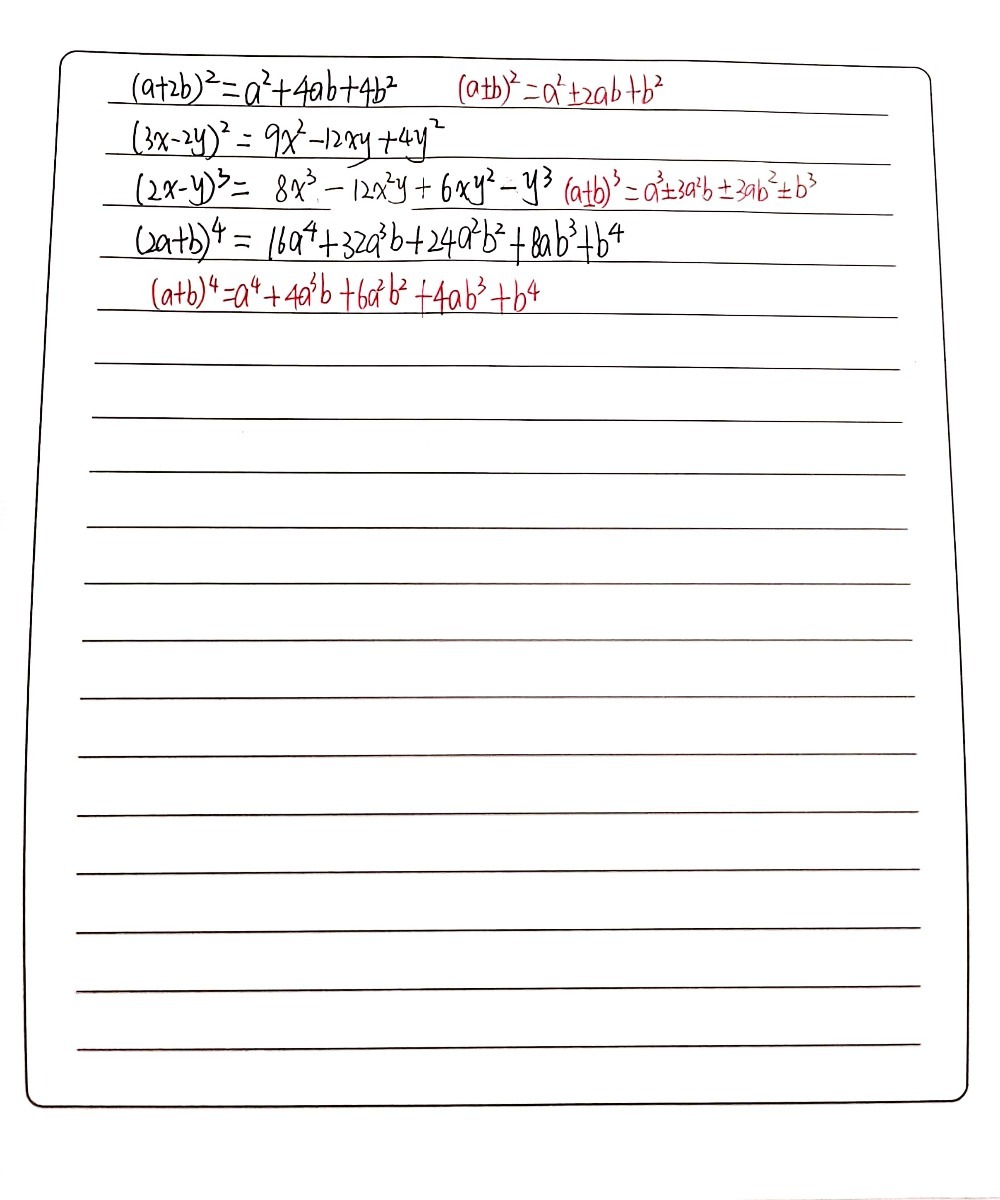 (a+2b)²=a²+4ab+4b² (a±b)²=a²±2ab+b²
(3x-2y)²= 9x²-12xy+4y²
(2x-y)³= 8x³-12x²y+6xy²-y³ (a±b)³=a³±3a²b±3ab²±b³
(2a+b)⁴= 16a⁴+32a³b+24a²b²+8ab³+b⁴
(a+b)⁴=a⁴+4a³b+6a²b²+4ab³+b⁴